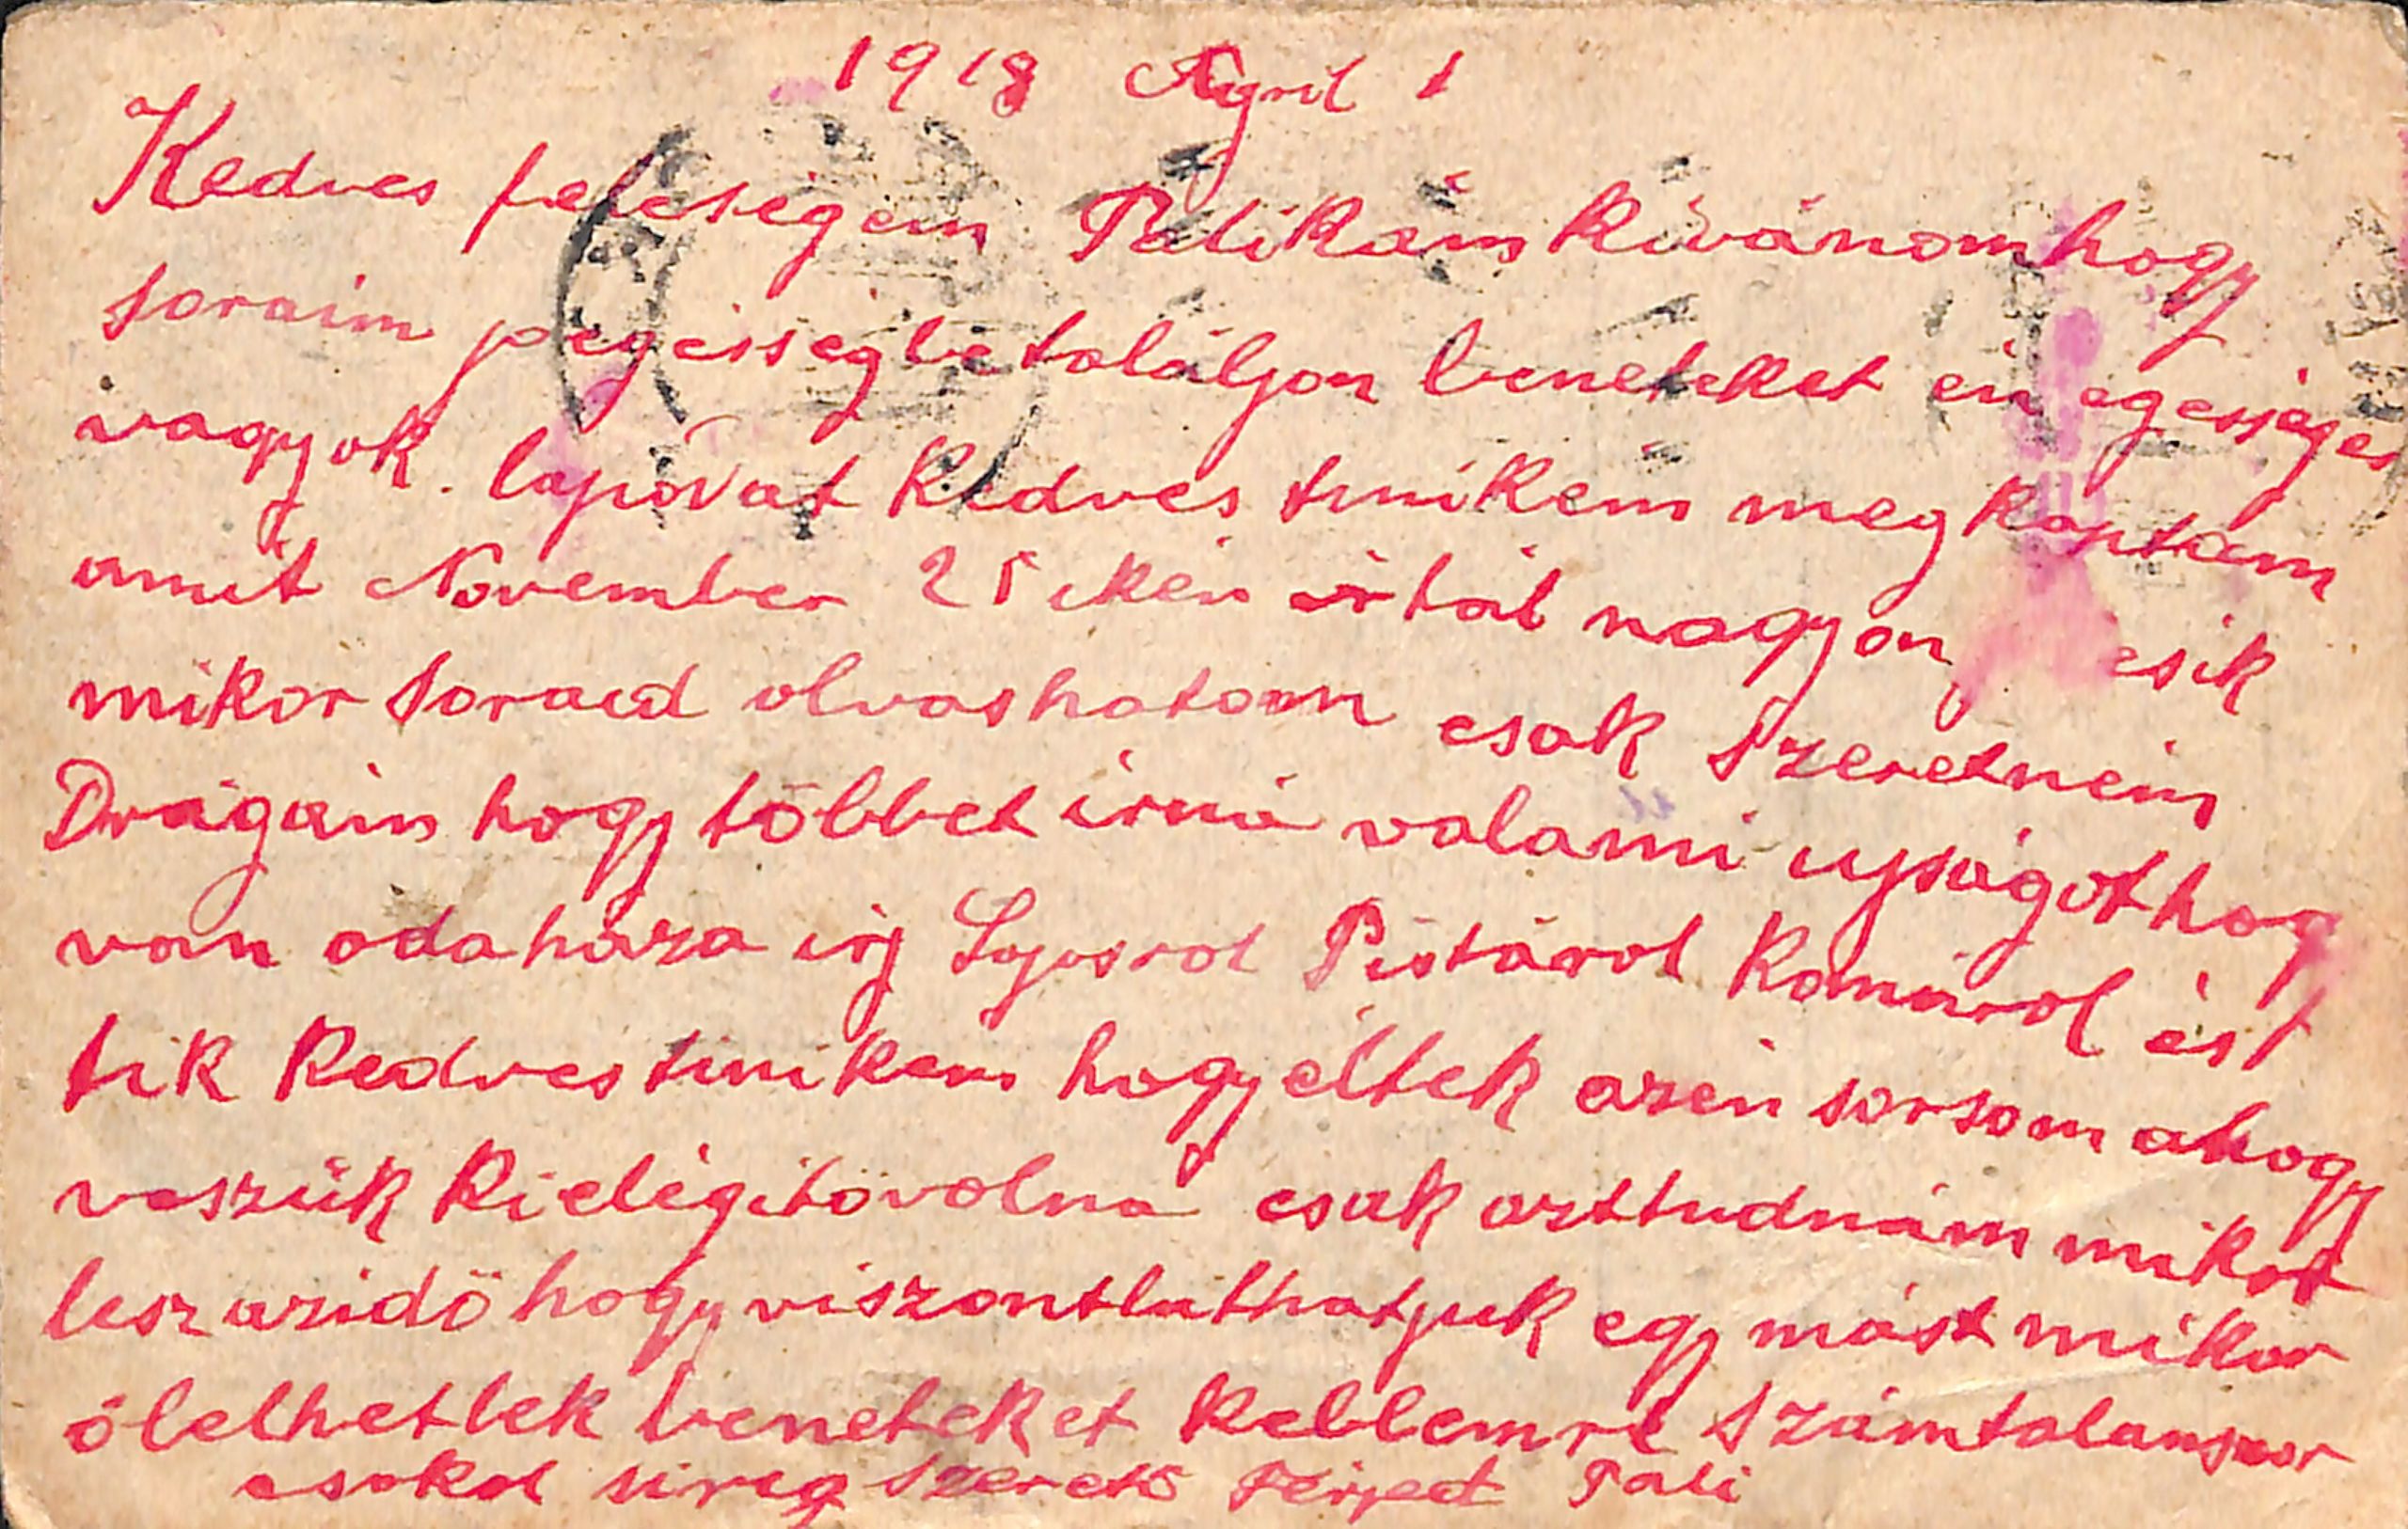 1918 April 1
Kedves feleségem Palikám kivánom hogy
soraim jo egésségbe találjon beneteket én egésséges
vagyok. lapodat kedves tinikém meg kaptam
amit November 25 ikén irtál nagyon esik
mikor soraid olvashatom csak szeretném
Drágám hogy többet irná valami ujságot hogy
van odaháza irj Lajosrol Pistárol Komárol és
tik kedves tinikém hogy éltek azén sorsom ahogy
veszük kielégitövolna csak azttudnám mikor
lesz azidö hogy viszontláthatjuk egymást mikor
ölelhetlek beneteket keblemre számtalanszor
csokol sirig szeretö Férjed Pali